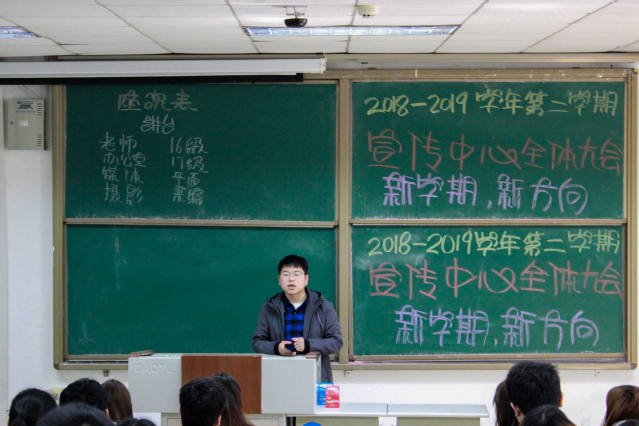 座次表
讲台
老师 16级
办公室 17级
媒体 平面
摄影 采编
2018-2019 学年第二学期
宣传中心全体大会
新学期,新方向
2018-2019学年第二学期
宣传中心全体大会
新学期,新方向